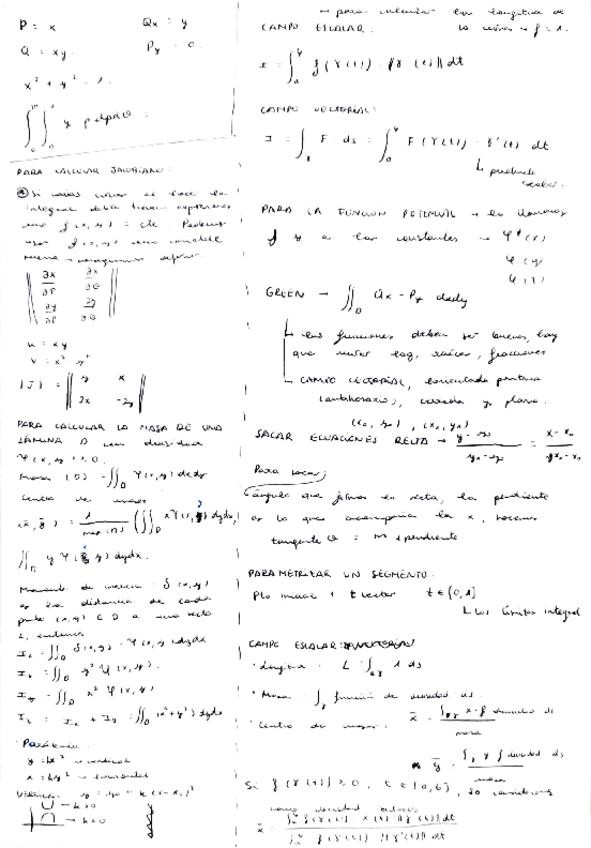 P = x Qx = y
Q = xy Py = 0
x² + y² = 1
∫∫ y ρ dρ dθ =
PARA CALCULAR JACOBIANO:
Si
integral
‖ ∂x/∂ρ ∂x/∂θ ‖
‖ ∂y/∂ρ ∂y/∂θ ‖
u = xy
v = x² y²
|J| = ‖ y x ‖
‖ 2x -2y ‖
PARA CALCULAR LA MASA DE UNA
LÁMINA D con densidad
Ψ(x,y) ≥ 0
masa (D) = ∬D Ψ(x,y) dxdy
Centro de masas
(x̄, ȳ) = 1/masa(D) (∬D x Ψ(x,y) dydx,
∬D y Ψ(x,y) dydx.
Momento de inercia: δ(x,y)
es la distancia de cada
punto (x,y) ∈ D a una recta
L, entonces
IL = ∬D δ(x,y) · Ψ(x,y) dydx
Ix = ∬D y² Ψ(x,y)
Iy = ∬D x² Ψ(x,y)
Ix + Iy = ∬D (x²+y²) dydx
Parábola:
y = kx² → vertical
x = ky² → horizontal
y - y0 = k(x-x0)²
→ k>0
→ k<0
→ para calcular la longitud de
CAMPO ESCALAR la curva → f = 1.
I = ∫ f(γ(t)) · ‖γ'(t)‖ dt
CAMPO VECTORIAL:
I = ∫γ F ds = ∫ F(γ(t)) · γ'(t) dt
↳ producto
escalar.
PARA LA FUNCION POTENCIAL → lo llamamos
f y a las constantes → φ(x)
φ(y)
φ(z)
GREEN → ∬D Qx - Py dxdy
↳ las funciones deben ser buenas, hay
que mirar log, raíces, fracciones
↳ CAMPO VECTORIAL, orientada positiva
(antihorario), cerrada y plana.
(x0, y0), (x1, y1)
SACAR ECUACIONES RECTA → y-y0/y1-y0 = x-x0/x1-x0
Para sacar:
ángulo que forma la recta, la pendiente
es lo que acompaña la x, hacemos
tangente θ = m → pendiente
PARAMETRIZAR UN SEGMENTO:
Pto inicial + t vector t ∈ [0,1]
↳ Los límites integral
CAMPO ESCALAR
· Longitud: L = ∫ 1 ds
· Masa: ∫γ función de densidad ds
· Centro de masas: x̄ = ∫γ x · f densidad ds / masa
ȳ = ∫γ y f densidad ds / masa
Si f(γ(t)) ≥ 0, t ∈ [a,b], lo consideramos
como densidad
x̄ = ∫ f(γ(t)) · x(t) ‖γ'(t)‖ dt / ∫ f(γ(t)) ‖γ'(t)‖ dt